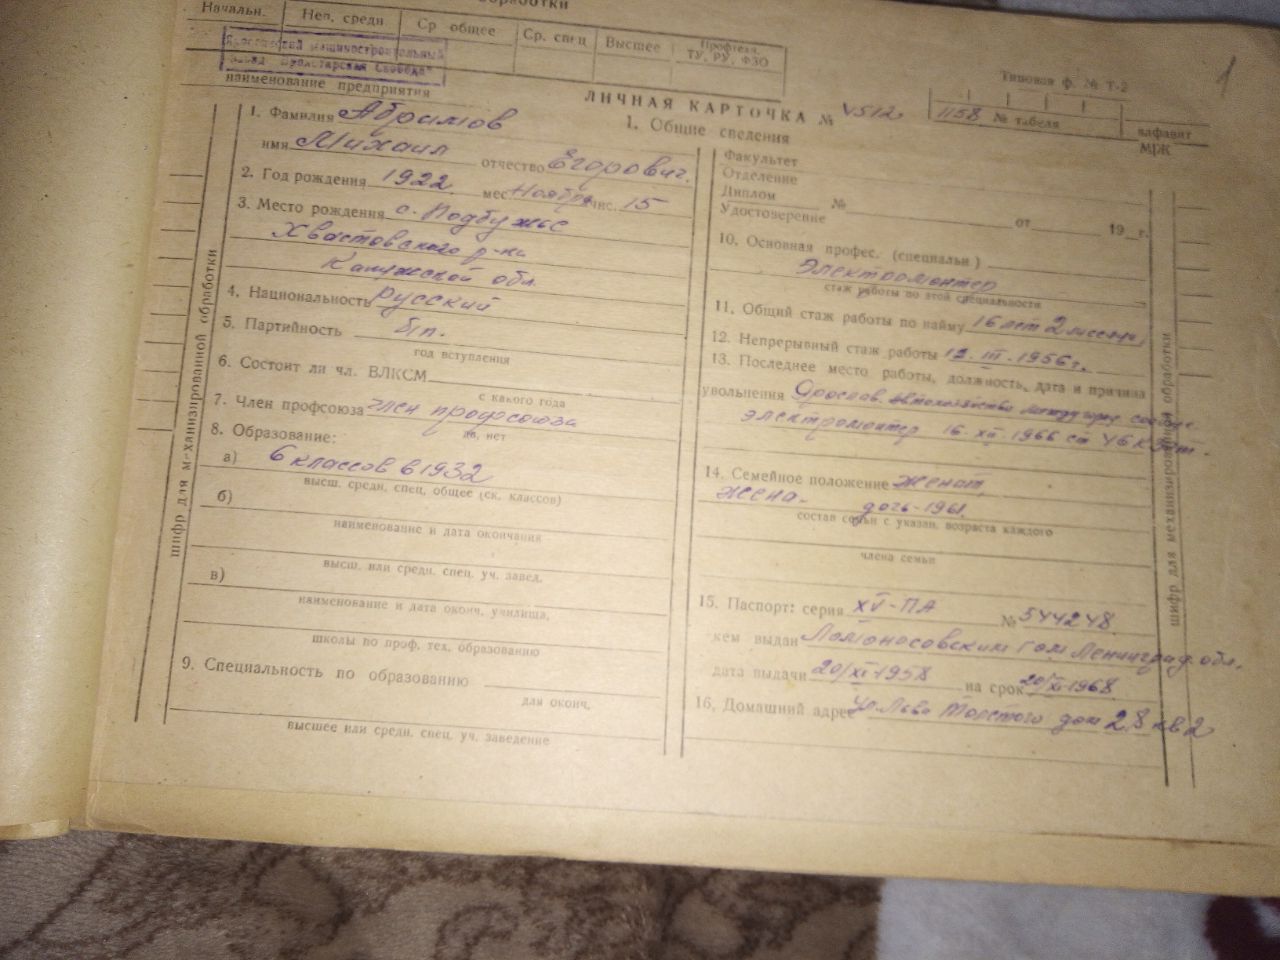 обработки
Начальн. Неп. средн Ср общее Ср. спец Высшее Профтехн. ТУ, РУ, ФЗО
Ярославский машиностроительный
завод "Пролетарская Свобода"
наименование предприятия
Типовая ф. № Т-2
1
ЛИЧНАЯ КАРТОЧКА №
1158 № табеля
алфавит
М/Ж
1. Общие сведения
1. Фамилия Абрамов
имя Михаил отчество Егорович.
2. Год рождения 1922 мес ноября чис. 15
3. Место рождения с. Подбужье
Хвастовского р-на
Калужской обл.
4. Национальность русский
5. Партийность б/п.
год вступления
6. Состоит ли чл. ВЛКСМ
с какого года
7. Член профсоюза член профсоюза
да, нет
8. Образование:
а) 6 классов в 1932
высш. средн. спец. общее (ск. классов)
б)
наименование и дата окончания
высш. или средн. спец. уч. завед.
в)
наименование и дата оконч. училища,
школы по проф. тех. образованию
9. Специальность по образованию
для оконч.
высшее или средн. спец. уч. заведение
шифр для механизированной обработки
Факультет
Отделение
Диплом
Удостоверение № от 19 г.
10. Основная профес. (специальн)
электромонтер
стаж работы по этой специальности
11. Общий стаж работы по найму 16 лет 2 месяца
12. Непрерывный стаж работы 12. III. 1956 г.
13. Последнее место работы, должность, дата и причина
увольнения Ярослав. автохозяйство междугор. сообще
электромонтер 16. XII. 1966 ст
14. Семейное положение женат,
жена. дочь - 1961.
состав семьи с указан. возраста каждого
члена семьи
15. Паспорт: серия XV-ПА № 544248
кем выдан Ломоносовским гом Ленинград обл.
дата выдачи 20/XI-1958 на срок 20/XI-1968
16. Домашний адрес ул. Льва Толстого дом 28 кв 2
шифр для механизированной обработки